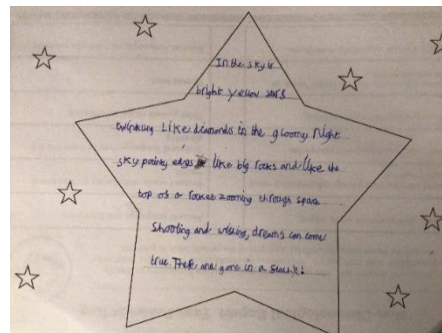 In the sky is
bright yellow stars
twinkling Like diamonds in the gloomy Night
sky pointy edges like big rocks and like the
top of a rocket zooming through space
Shooting and wishing, dreams can come
true. There and gone in a